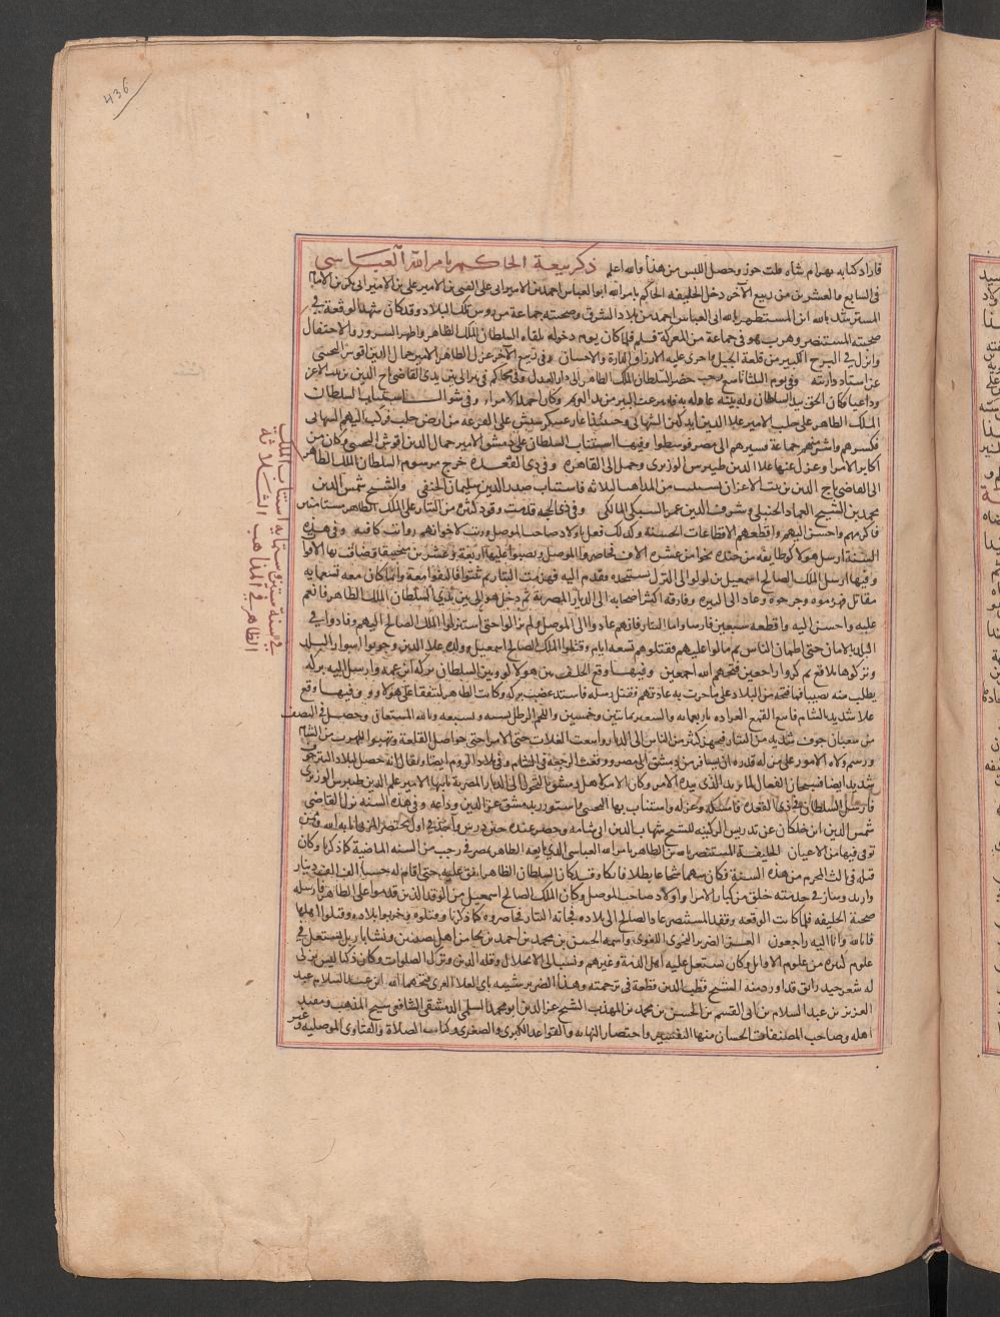 436
فاراد كتابه بهرام شاه ملت حوز وحصل اللبس من هذا والله اعلم ذكر بيعة الحاكم بامر الله العباسي
في السابع والعشرين من ربيع الآخر دخل الخليفه الحاكم بامر الله ابو العباس احمد بن الامير ابي على القبي بن الامير على بن الامير ابي بكر بن الامام
المسترشد بالله ابن المستظهر بالله ابي العباس احمد من بلاد الشرق وصحبته جماعة من روس تلك البلاد وقد كان شهد الوقعة في
صحبته المستنصر وهرب هو في جماعة من المعركة فسلم فلما كان يوم دخوله تلقاه السلطان الملك الظاهر واظهر السرور والاحتفال
وانزل في البرج الكبير من قلعة الجبل واجرى عليه الارزاق الدارة والاحسان وفي ربيع الآخر عزل الظاهر الامير جمال الدين اقوش النجيبي
عن استاد داريته وفي يوم الثلثا تاسع رجب حضر السلطان الملك الظاهر الى دار العدل في محاكم في بير الى بين يدي القاضي تاج الدين بن بنت الاعز
الملك الظاهر على حلب الامير علا الدين ايدكين الشهابي وحينئذ اغار عسكر سيس على الفوعة من ارض حلب فركب اليهم الشهابي
فكسرهم واسر منهم جماعة وسيرهم الى مصر فوسطوا وفيها استناب السلطان على دمشق الامير جمال الدين اقوش النجيبي وكان من
اكابر الامرا وعزل عنها علا الدين طيبرس الوزيري وحمل الى القاهرة وفي ذي القعدة خرج مرسوم السلطان الملك الظاهر
الى القاضي تاج الدين بن بنت الاعز ان يستنيب من المذاهب الثلاثه فاستناب صدر الدين سليمان الحنفي والشيخ شمس الدين
محمد بن الشيخ العماد الحنبلي وشرف الدين عمر السبكي المالكي وفي ذي الحجه قدمت وفود كثيره من التتار على الملك الظاهر مستامنين
فاكرمهم واحسن اليهم واقطعهم الاقطاعات الحسنة وكذلك فعل باولاد صاحب الموصل ورتب لاخوانهم رواتب كافيه وفي هذه
السنة ارسل هولاكو طايفه من جنده نحوا من عشره الاف فحاصروا الموصل ونصبوا عليها اربعة وعشرين منجنيقا وضاقت بها الاقوات
وفيها ارسل الملك الصالح اسمعيل بن لولو الى التركي يستنجده فقدم اليه فهزمت التتار ثم ثبتوا فالتقوا معه وانما كان معه تسعمايه
مقاتل فهزموه وجرحوه وعاد الى البيره وفارقه اكثر اصحابه الى الديار المصرية ثم دخل هو الى بين يدي السلطان الملك الظاهر فانعم
عليه واحسن اليه واقطعه سبعين فارسا واما التتار فانهم عادوا الى الموصل ولم يزالوا حتى استنزلوا الملك الصالح اليهم ونادوا في
البلد بالامان حتى اطمان الناس ثم مالوا عليهم فقتلوهم تسعه ايام وقتلوا الملك الصالح اسمعيل وولده علا الدين وخربوا اسوار البلد
وتركوها بلاقع ثم كروا راجعين قبحهم الله اجمعين وفيها وقع الخلف بين هولاكو وبين السلطان بركه ابن عمه وارسل اليه بركه
يطلب منه نصيبا فيما فتحه من البلاد على ما جرت به عادتهم فقتل رسله فاشتد غضب بركه وكاتب الظاهر ليتفقا على هولاكو وفيها وقع
غلا شديد بالشام فابيع القمح الغراره باربعمايه والشعير بمايتين وخمسين واللحم الرطل بسته وبسبعه وبالله المستعان وحصل في النصف
من شعبان خوف شديد من التتار فتجهز كثير من الناس الى الديار وابيعت الغلات حتى الامرا حتى حواصل القلعة
ورسم ولاه الامور على من له قدره ان يسافر من دمشق الى مصر ووقعت الرجفه في الشام وفي بلاد الروم ايضا ويقال انه حصل لبلاد التتر خوف
شديد ايضا فسبحان الفعال لما يريد الذي بيده الامر وكان الامر لاهل دمشق بالتحول الى الديار المصرية نايبها الامير علا الدين طيبرس الوزيري
فارسل السلطان في ذي القعده فامسكه وعزله واستناب بها النجيبي واستوزر بدمشق عز الدين وداعه وفي هذه السنه نزل القاضي
شمس الدين ابن خلكان عن تدريس الركنيه للشيخ شهاب الدين ابي شامه وحضر عنده حين درس واخذ في اول مختصر المزني اثابه الله وممن
توفي فيها من الاعيان الخليفة المستنصر بالله بن الظاهر بامر الله العباسي الذي بايعه الظاهر بمصر في رجب من السنه الماضية كما ذكرنا وكان
قتله في ثالث المحرم من هذه السنة فكان شهما شجاعا بطلا فاتكا وقد كان السلطان الظاهر انفق عليه حتى اقام له جيشا الف الف دينار
وازيد وسار في خدمته خلق من كبار الامرا واولاد صاحب الموصل وكان الملك الصالح اسمعيل من الوفد الذين قدموا على الظاهر فارسله
صحبة الخليفه فلما كانت الوقعه وفقد المستنصر عاد الصالح الى بلاده فجاته التتار فحاصروه كما ذكرنا وقتلوه وخربوا بلاده وقتلوا اهلها
فانا لله وانا اليه راجعون العز الضرير النحوي اللغوي واسمه الحسن بن محمد بن احمد بن نجا من اهل نصيبين ونشا باربل فاشتغل في
علوم كثيره من علوم الاوايل وكان يشتغل عليه اهل الذمة وغيرهم ونسب الى الانحلال وقله الدين وترك الصلوات وكان ذكيا ليس بزكي
له شعر جيد رايق قد اورد منه الشيخ قطب الدين قطعة في ترجمته وهذا الضرير شبيه بابي العلا المعري قبحهما الله ابن عبد السلام عبد
العزيز بن عبد السلام بن ابي القسم بن الحسن بن محمد بن المهذب الشيخ عز الدين ابو محمد السلمي الدمشقي الشافعي شيخ المذهب ومفيد
اهله وصاحب المصنفات الحسان منها التفسير واختصار النهايه والقواعد الكبرى والصغرى وكتاب الصلاة والفتاوى الموصليه وغير
في سنة ستين وستمايه استناب الملك
الظاهر في المذاهب الثلاثة